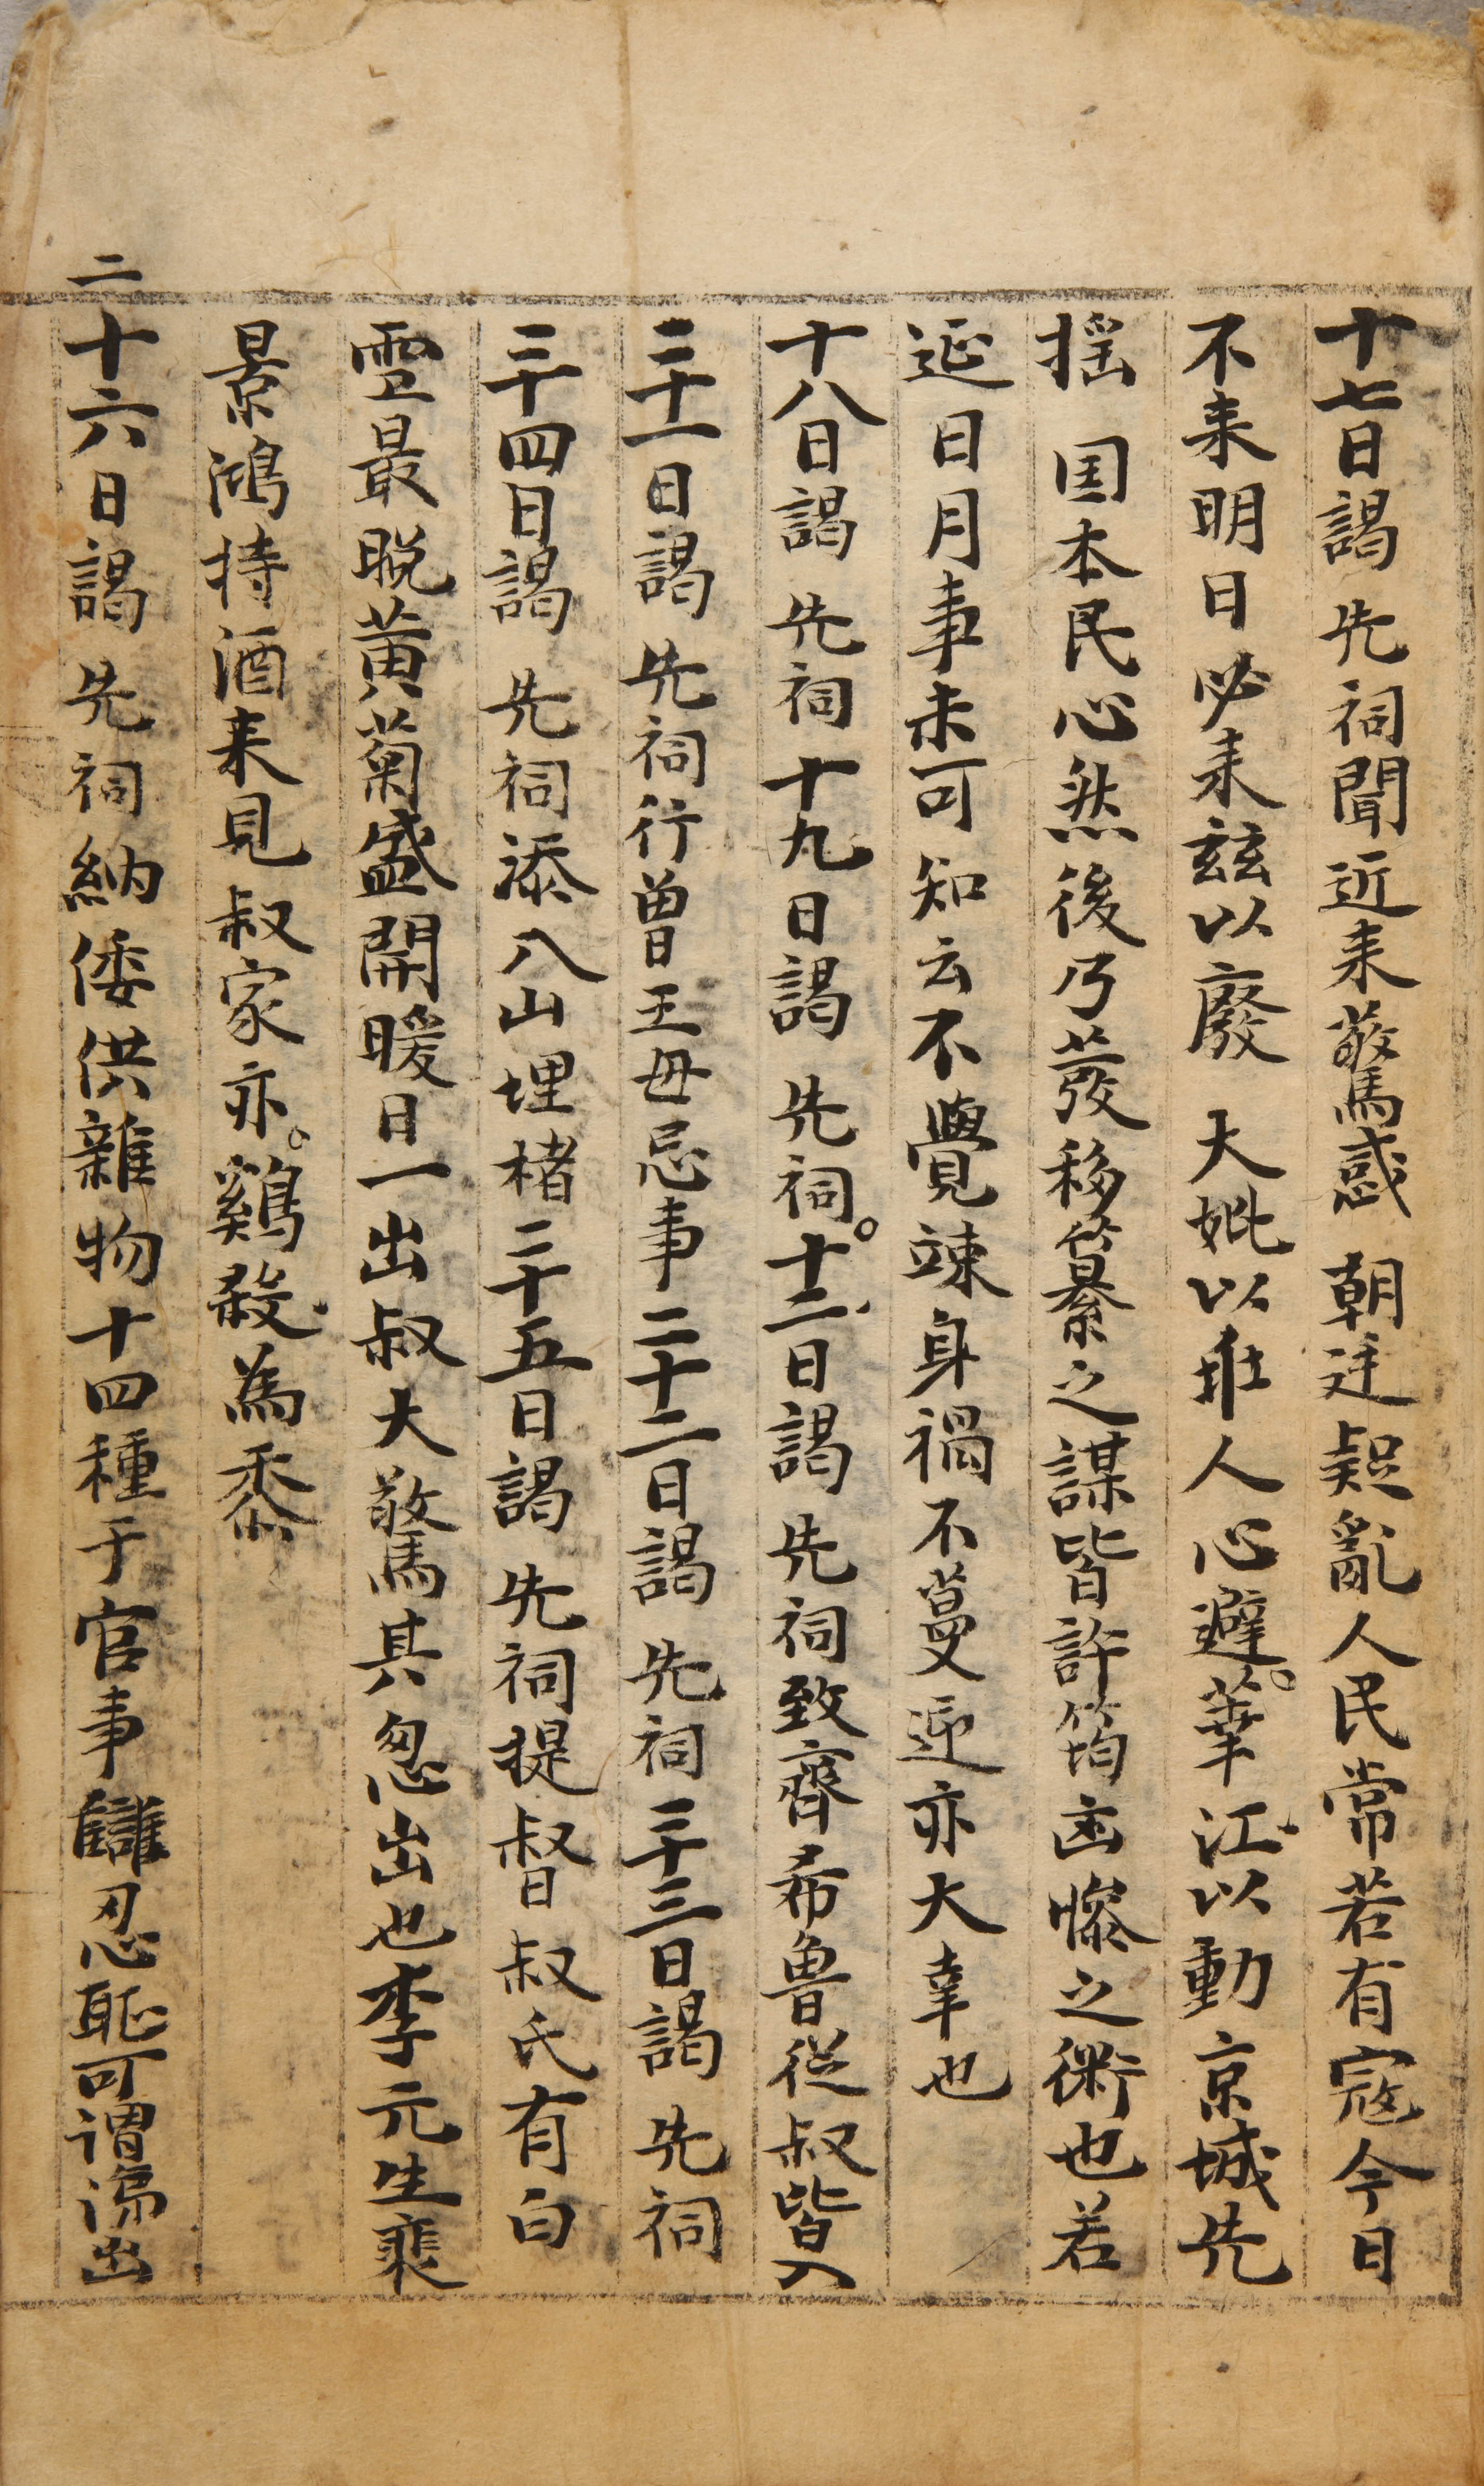 十七日謁 先祠聞近来驚惑 朝廷疑亂人民常若有寇今日
不来明日必来玆以廢 大妣以乖人心避葦江以動京城先
揺 国本民心然後乃發移纂之謀皆許筠凶慘之術也若
延日月事未可知云不覺竦身禍不蔓延亦大幸也
十八日謁 先祠十九日謁 先祠十二日謁 先祠致齊希魯從叔皆入
二十一日謁 先祠行曽王母忌事二十二日謁 先祠二十三日謁 先祠
二十四日謁 先祠添八山埋楮二十五日謁 先祠提督叔氏有白
雪最晩黄菊盛開暖日一出叔大驚其忽出也李元生裴
景鴻持酒来見叔家亦鷄殺為黍
二十六日謁 先祠納倭供雜物十四種于官事讎忍恥可謂 出